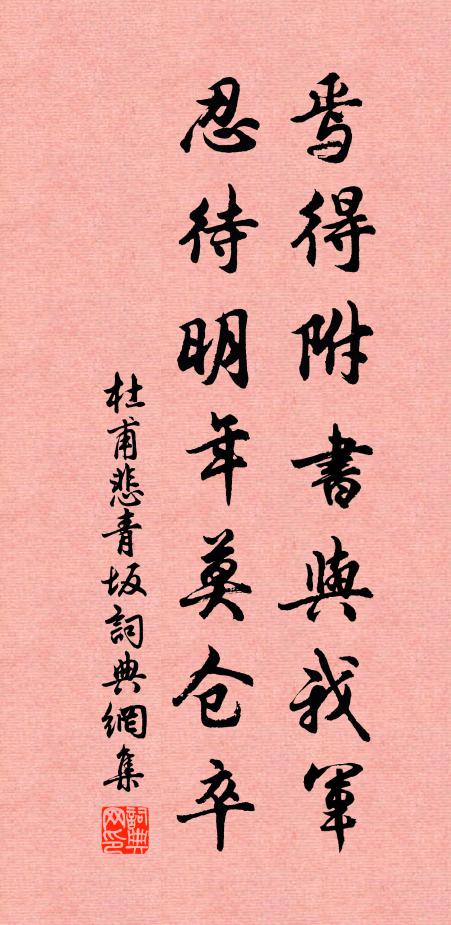 焉得附書與我軍
忍待明年莫仓卒
杜甫悲青坂詞典網集
詞典网印